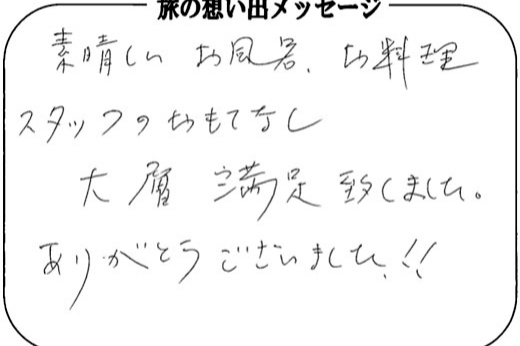 旅の想い出メッセージ
素晴しい お風呂、お料理
スタッフのおもてなし
大層 満足致しました。
ありがとうございました!!